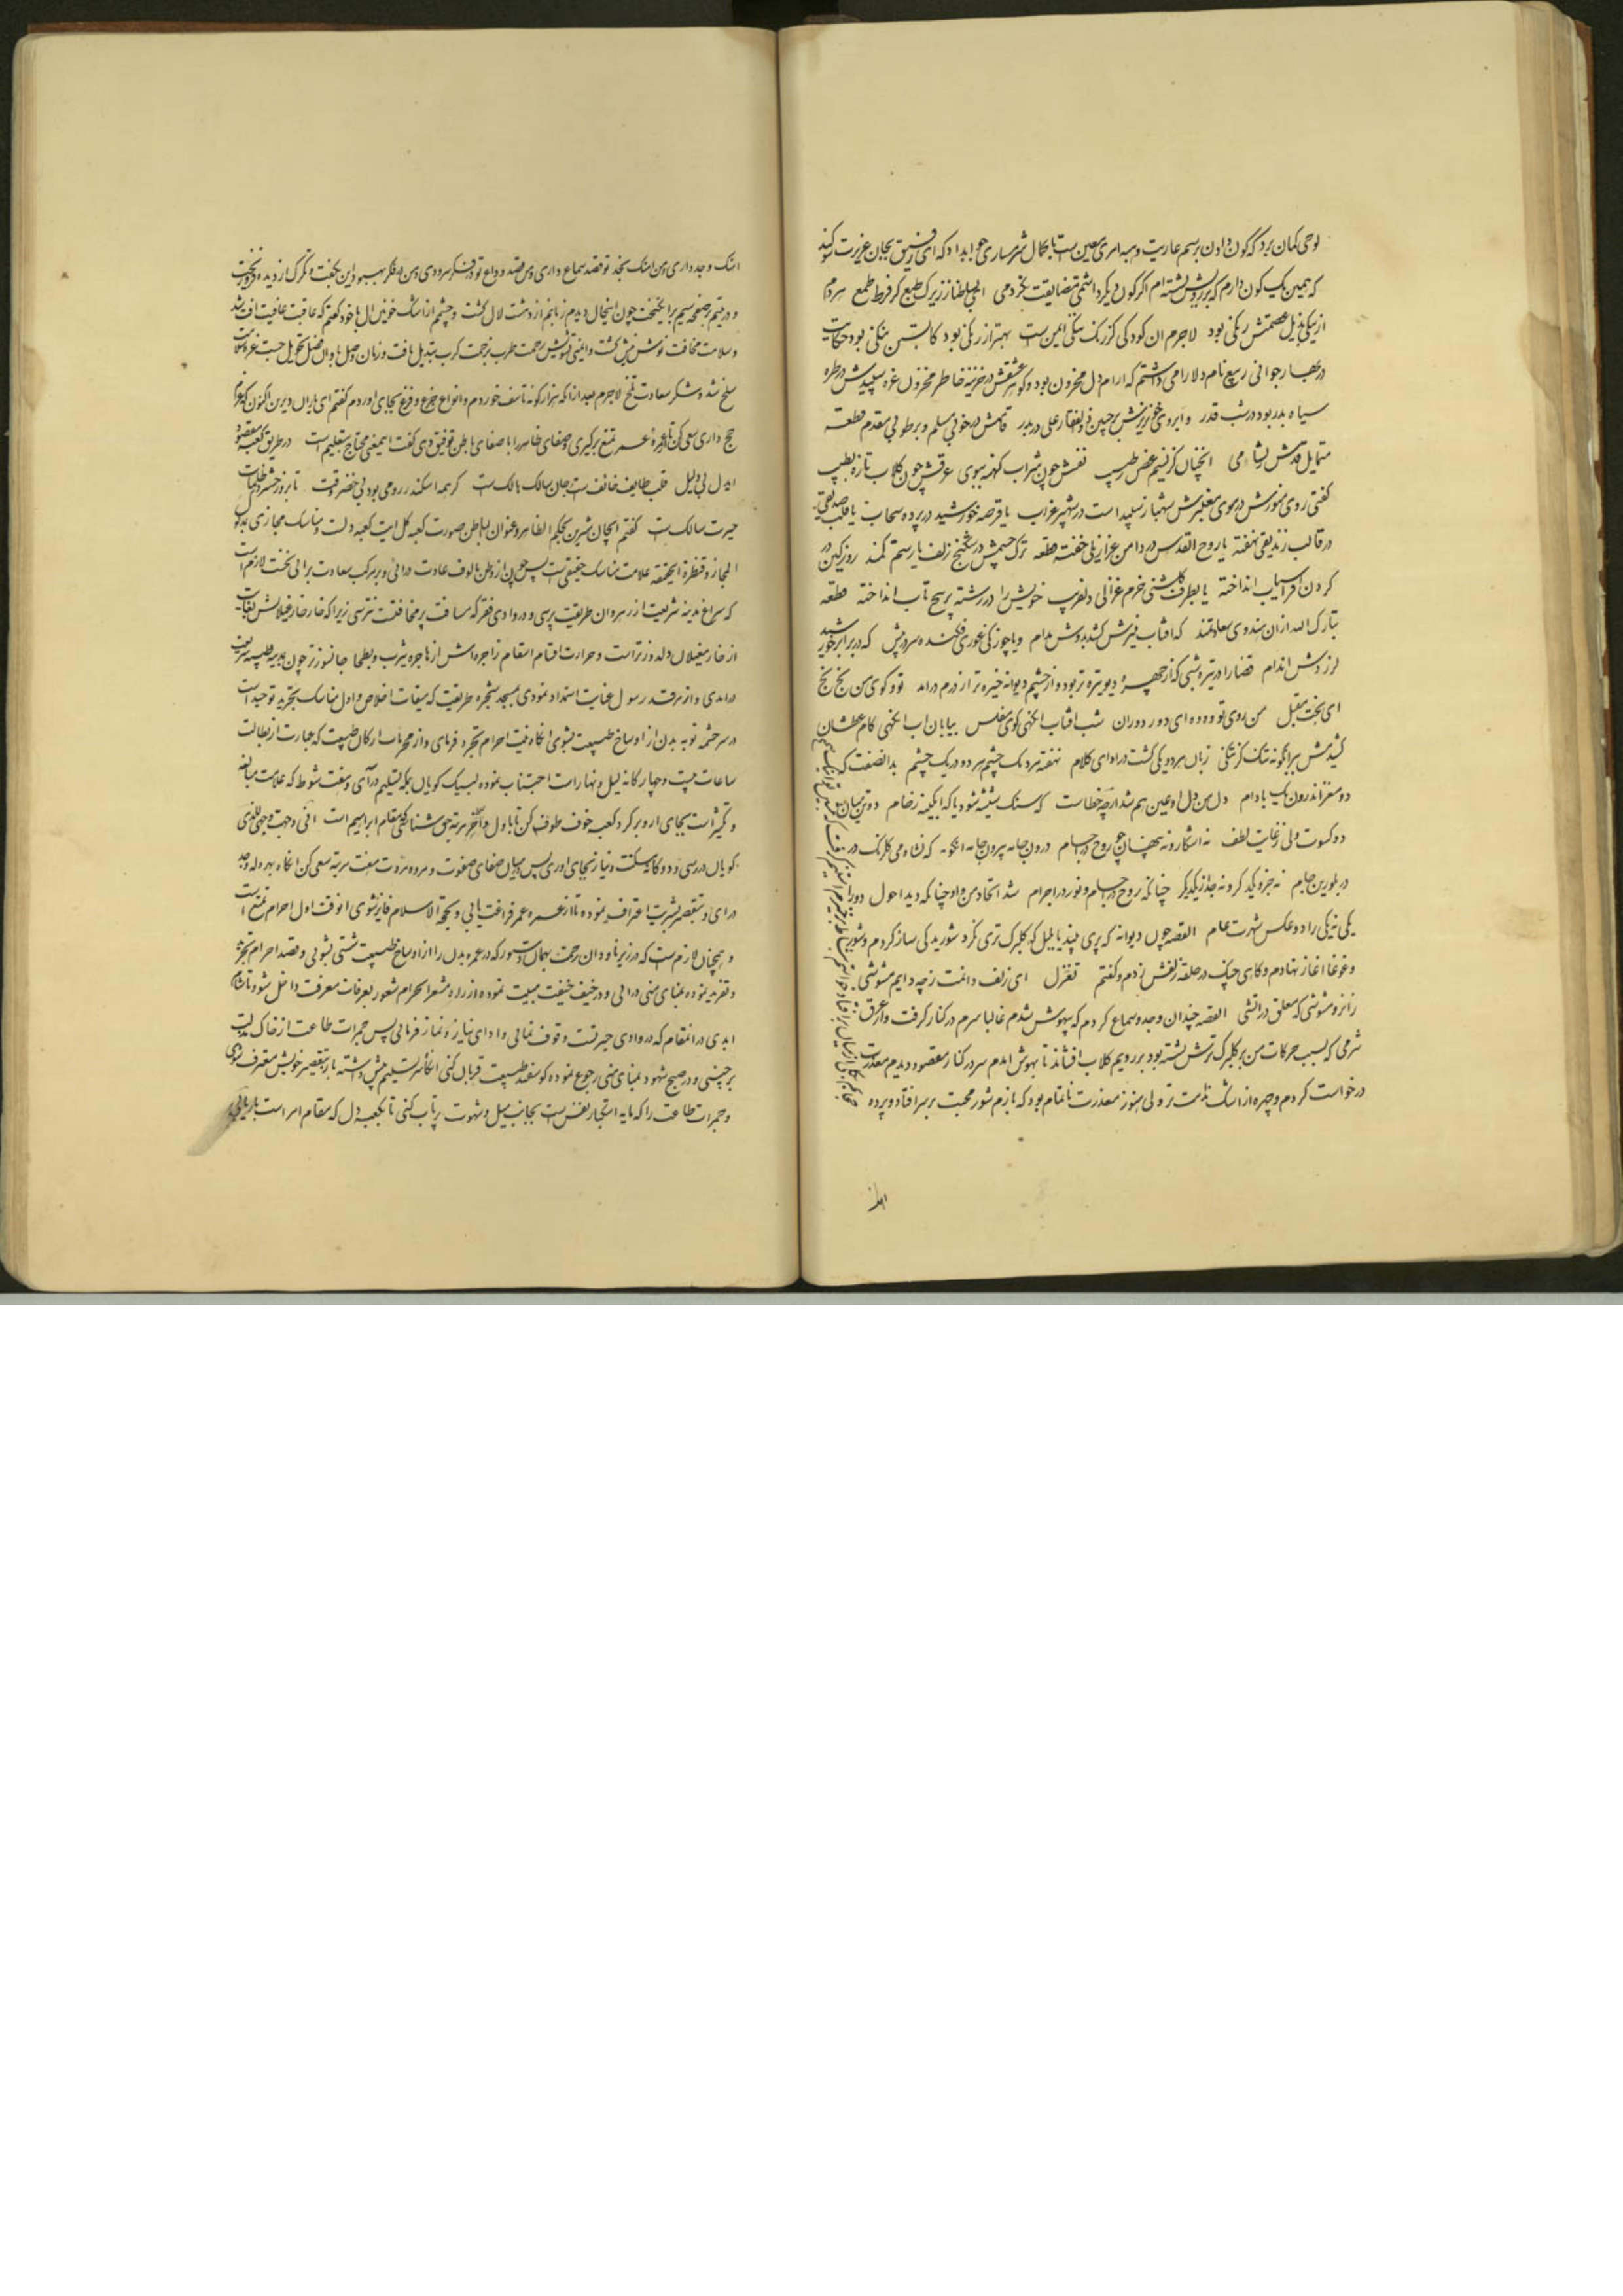 لوحی کمان برد که کون دادن برسم عاریت و هبه امری معین است با کمال شرمساری جوابداد که ای رفیق بجان عزیزت سوکند
که همین یک کون دارم که برو نشسته ام اکر کون دیکر داشتمی مضایقت نکردمی طبع کز فرط طمع مردم
از نیکی بذیل عصمتش رنکی بود لاجرم ان کودکی کز رنک ننکی ایمن است بهتر از رنکی بود کابستن ننکی بود حکایت
در بهار جوانی ربیع نام دلارامی داشتم که ارام دل محزون بود و کوهر عشقش در خزینه خاطر مخزون غره سپیدش در طره
سیاه بدر بود در شب قدر و ابروی خونریزش بر جبین ذوالفقار علی در بدر قامتش در خوبی مسلم و بر طوبی مقدم قطعه
متمایل قدش ز نشاء می انچنان کز نسیم غصن رطیب نفسش چون شراب کهنه ببوی عرقش چون کلاب تازه بطیب
کفتی روی منورش در موی معنبرش شهباز سپید است در شهپر غراب یا قرصه خورشید در پرده سحاب یا قلب صدیقی
در قالب زندیقی نهفته یا روح القدس در دامن عزازیلی خفته قطعه ترک چشمش در شکنج زلف یا رستم کمند روز کین در
کردن افراسیاب انداخته یا بطرف کلشنی خرم غزالی دلفریب خویش را در رشته پر پیچ تاب انداخته قطعه
تبارک الله از ان هندوی سعادتمند که افتاب منیرش کشد بدوش مدام و یا چو زنکی عوری فکنده سر در پیش که در برابر خورشید
لرزدش اندام قضا را در تیره شبی که از چهره دیو تیره تر بود و از چشم دیوانه خیره تر از درم درامد تو و کوی من بخ بخ
ای بخت مقبل من و روی تو وه وه ای دور دوران شب افتاب انکهی کوی مفلس بیابان اب انکهی کام عطشان
کشیدمش ببر انکونه تنک کز تنکی زبان هر دو یکی کشت در ادای کلام نهفته مردمک چشم هر دو در یک چشم بدان صفت که
دو مغز اندرون یک بادام دل من و دل او عین هم شد ار چه خطاست که سنک شیشه شود یا که ابکینه رخام دو تن میان
دو کسوت ولی ز غایت لطف نه اشکار و نه پنهان چو روح در اجسام درون جامه برون جامه انکونه که نشاء می کلرنک در
در بلورین جام نه جزو یکدکر و نه جدا ز یکدیکر چنانکه روح در اجسام و نور در اجرام شد اتحاد من و او چنانکه دید احول دو را
یکی نه یکی را دو عکس شهرت عام القصه چون دیوانه که پری بیند یا بلبل که کلبرک تری نکرد شوریدکی ساز کردم و شور
و غوغا اغاز نهادم و کاهی چنک در حلقه زلفش زدم و کفتم تغزل ای زلف دانمت ز چه دایم مشوشی
زانرو مشوشی که معلق در اتشی القصه چندان وجد و سماع کردم که بیهوش شدم غالبا سرم در کنار کرفت و از عرق
شرمی که بسبب حرکات من بر کلبرک ترش نشسته بود بر رویم کلاب افشاند تا بهوش امدم سر در کنار مقصود دیدم معذرت
درخواست کردم و چهره از اشک ندامت تر ولی هنوز معذرت ناتمام بود که بازم شور محبت بر سر افتاد و پرده
اهنک وجد داری و من اهنک نجد تو قصد سماع داری و من قصد وداع تو در فکر سرودی و من در فکر بهبود این بکفت و تکرک از دیده فرو ریخت
و در یتیم بر صفحه سیم برانکیخت چون اینحال دیدم زبانم از دهشت لال کشت و چشمم از اشک خونین ال با خود کفتم که عاقبت عافیت افت شد
و سلامت مخافت نوش نیش کشت و ایمنی تشویش رحمت طرب بزحمت کرب تبدیل یافت و زمان وصل باوان فصل تحویل جست غره
سلخ شد و شکر سعادت تلخ لاجرم بعد از انکه هزار کونه تاسف خوردم و انواع جزع و فزع بجای اوردم کفتم ای یار
حج داری سعی کن تا از عمره عمر تمتع برکیری و صفای ظاهر را با صفای باطن توفیق دهی کفت اینمعنی محتاج بتعلیم است در طریق کعبه مقصود
ایدل بی دلیل قلب طایف خائف است و جان سالک هالک است کر همه اسکندر رومی بود بی خضر وقت تا بروز حشر در ظلمات
حیرت سالک است کفتم ایجان شیرین بحکم الظاهر عنوان الباطن صورت کعبه کل ایت کعبه دلست و مناسک مجازی بدلول
المجاز قنطرة الحقیقه علامت مناسک حقیقی است پس چون از وطن مالوف عادت درائی و بر مرکب سعادت برائی نخست لازم است
که سراغ مدینه شریعت از رهروان طریقت پرسی و در وادی فقر که مسافت پر مخافتست نترسی زیرا که خار خار غیلانش بغایت
از خار مغیلان دلدوزتر است و حرارت اقتام انتقام زاجره اش از هاجره یثرب و بطحا جانسوزتر چون بمدینه طیبه شریعت
درامدی و از مرقد رسول عنایت استمداد نمودی بمسجد شجره طریقت که میقات اخلاص و اول مناسک تجرید توحید است
در سرچشمه توبه بدن از اوساخ طبیعت بشوی انکاه نیت احرام تجرد فرمای و از محرمات ارکان طبیعت که عبارت از بطالت
ساعات بیست و چهار کانه لیل و نهار است اجتناب نموده لبیک کویان بمکه تسلیم درآی و هفت شوط که علامت مبالغه
و تکثیر است بجای ار و بر کرد کعبه خوف طوف کن تا باول و اخر مرتبه حق شناسی که مقام ابراهیم است انی وجهت وجهی للذی
کویان در رسی و دو کانه مسکنت و نیاز بجای اوری پس در میان صفای صفوت و مروه مروت هفت مرتبه سعی کن انکاه بهروله وجد
درای و بتقصیر بشریت اعتراف نموده تا از عمره عمر فراغت یابی و بحجة الاسلام فایز شوی انوقت اول احرام تمتع است
و همچنان لازم است که در زیر ناودان رحمت بهمان دستور که در عمره بدن را از اوساخ طبیعت شستی بشوئی و قصد احرام تجرد
و تفرید نموده بمنای منی درائی و در خیف خیفت مبیت نموده از راه مشعر الحرام شعور بعرفات معرفت داخل شوی تا شام
ابدی در انمقام که در وادی حیرتست وقوف نمائی و ادای نیاز و نماز فرمائی پس جمرات طاعت از خاک
برچینی و در صبح شهود بمنای منی رجوع نموده کوسفند طبیعت قربان کنی انکاه سر تسلیم پیش داشته باز بتقصیر خویش معترف شوی
و جمرات طاعت را که مایه استجبار نفس است بجانب میل و شهوت پرتاب کنی تا بکعبه دل که مقام امن است باریابی